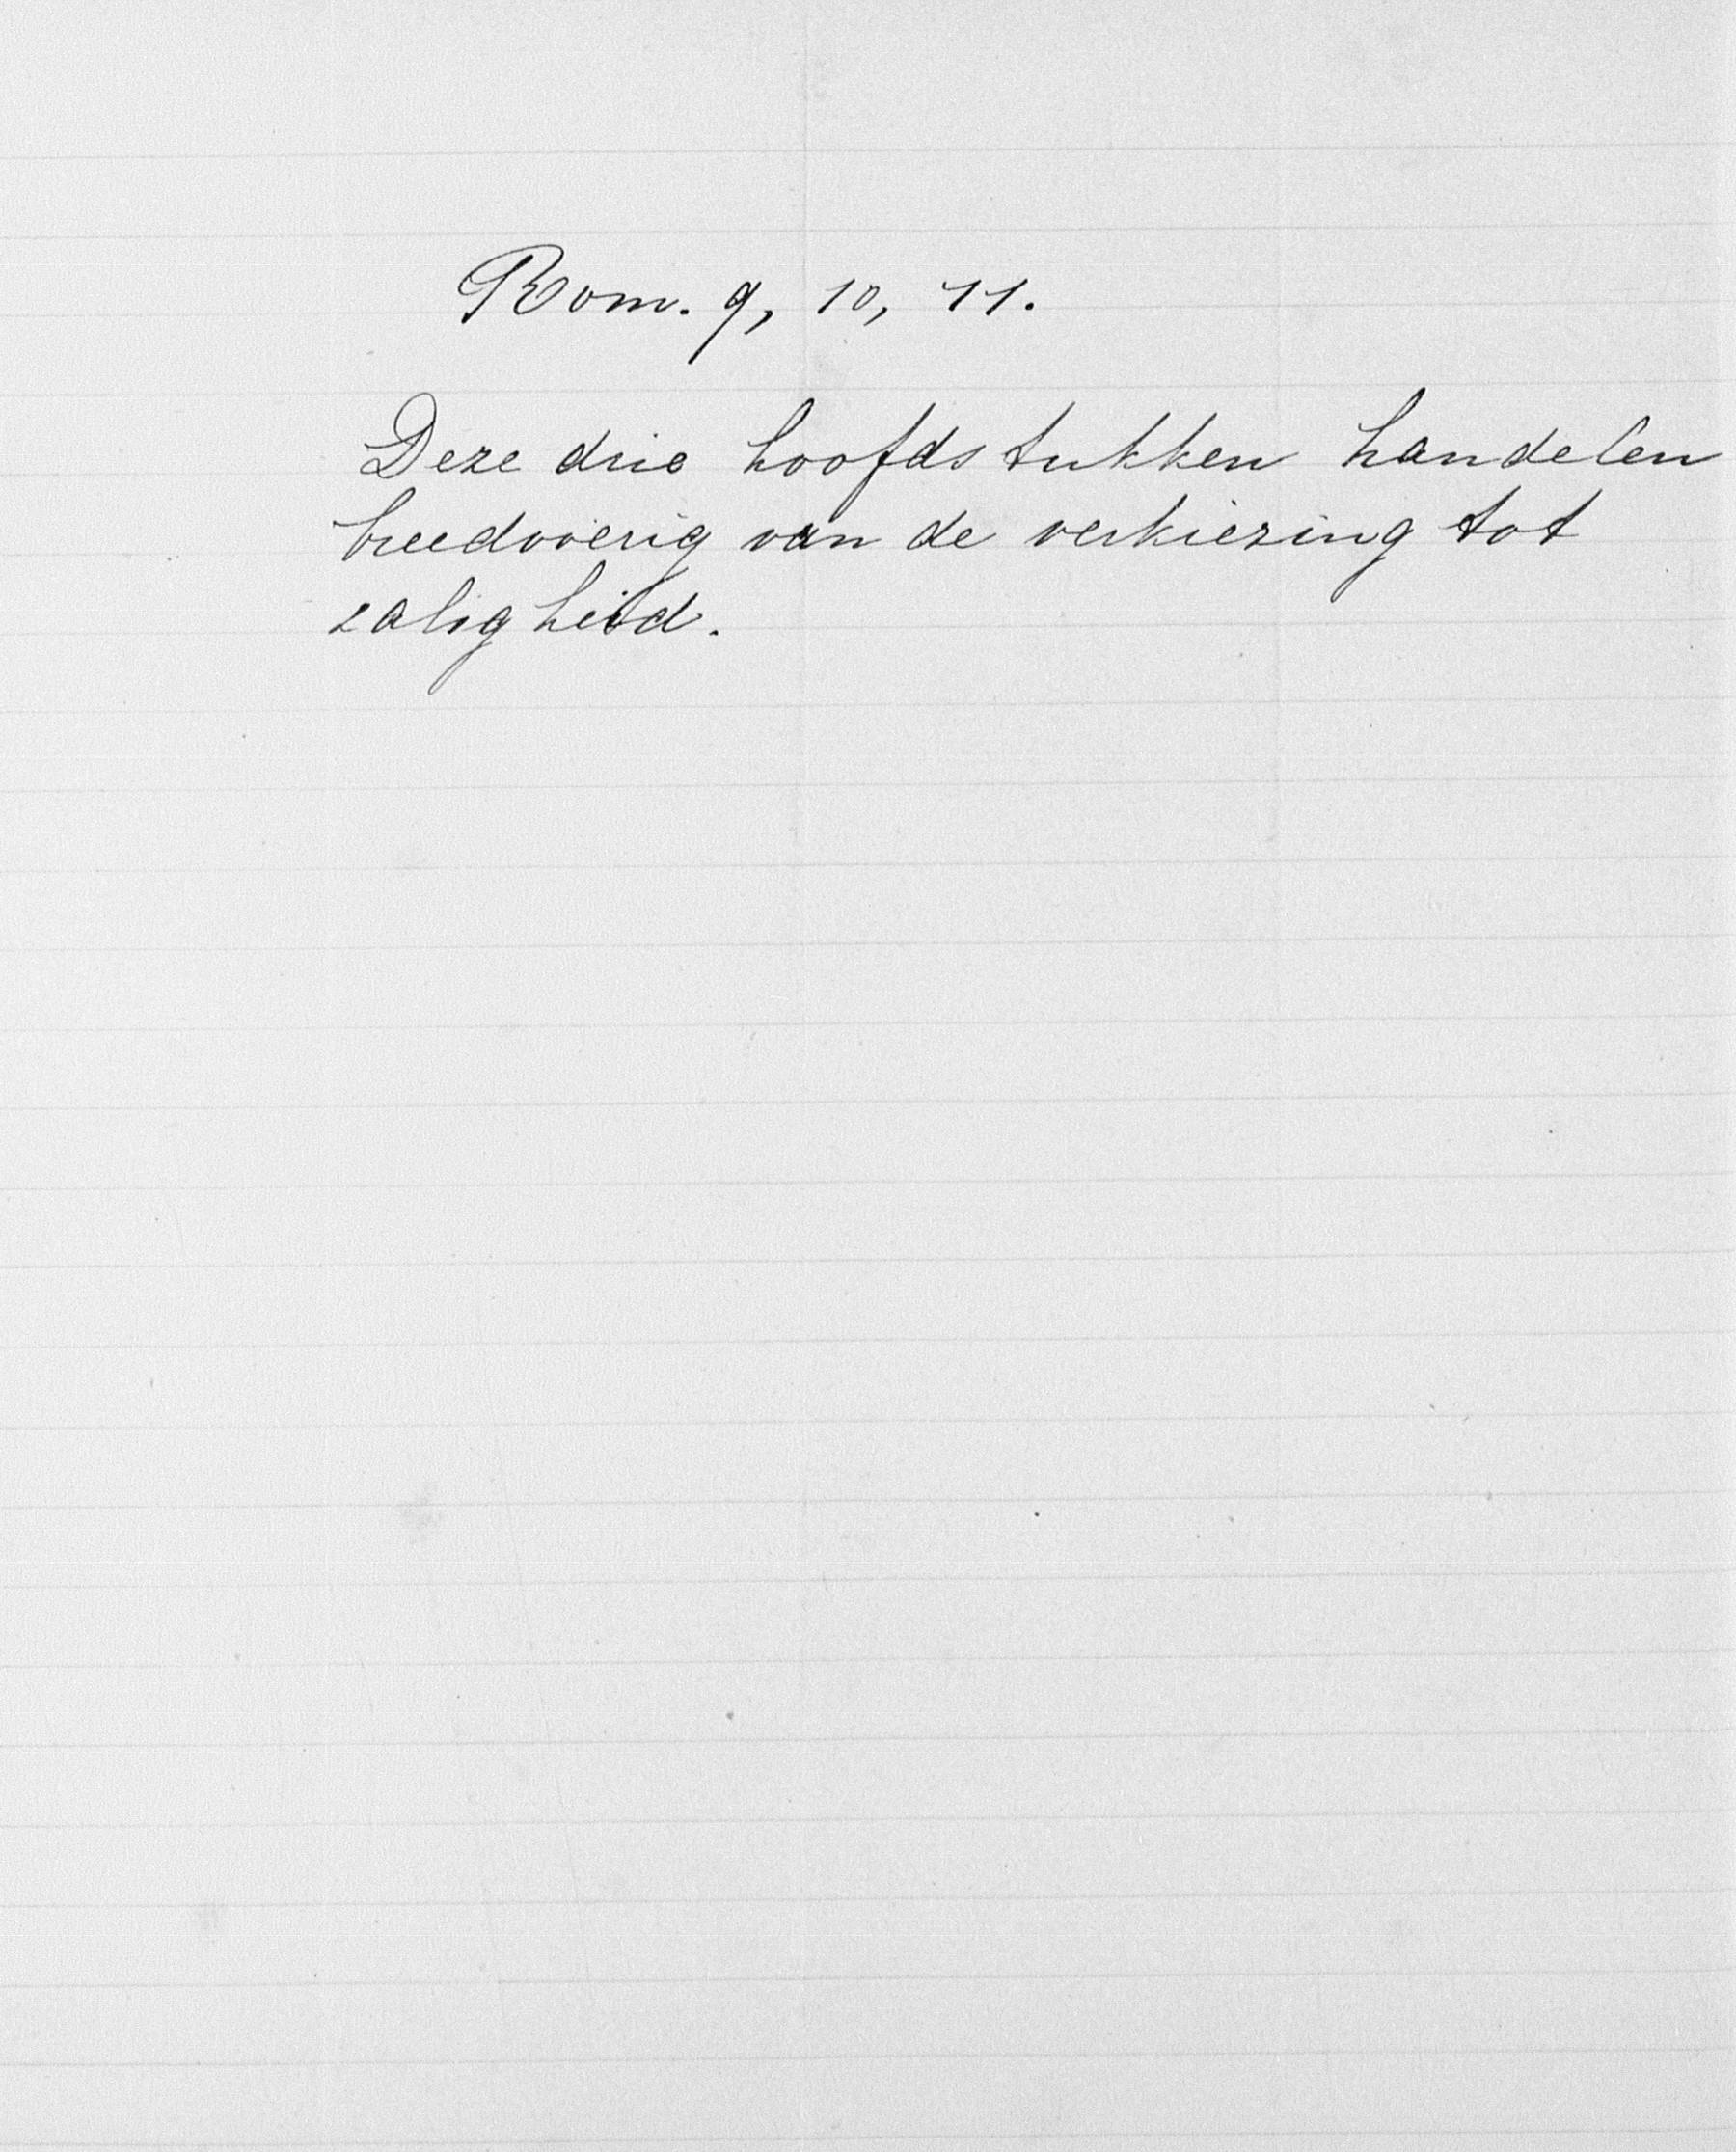 Rom. 9, 10, 11.
Deze drie hoofdstukken handelen
breedvoerig van de verkiezing tot
zaligheid.